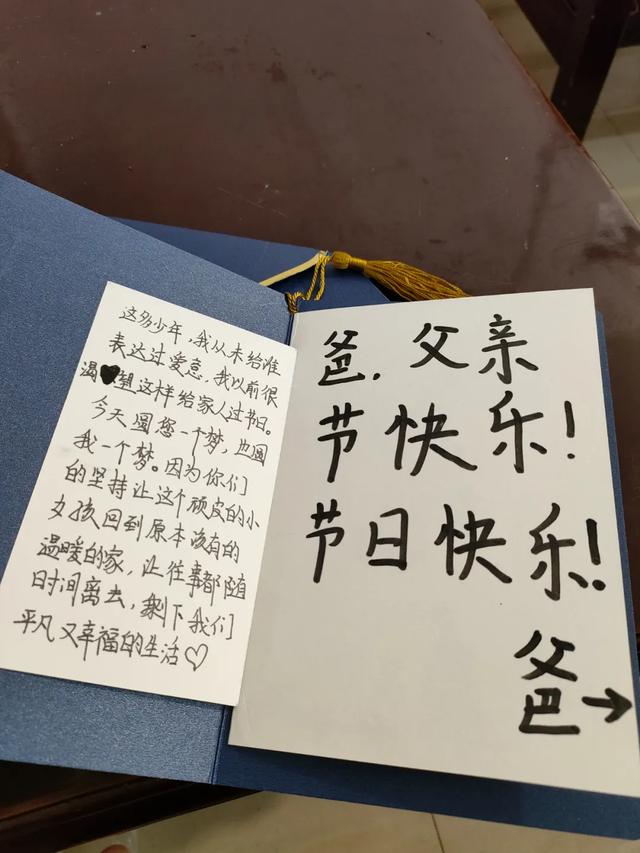 这多少年,我从未给谁
表达过爱意,我以前很
渴望这样给家人过节日。
今天圆您一个梦,也圆
我一个梦。因为你们
的坚持让这个顽皮的小
女孩回到原本该有的
温暖的家,让往事都随
时间离去,剩下我们
平凡又幸福的生活♡
爸,父亲
节快乐!
节日快乐!
爸→